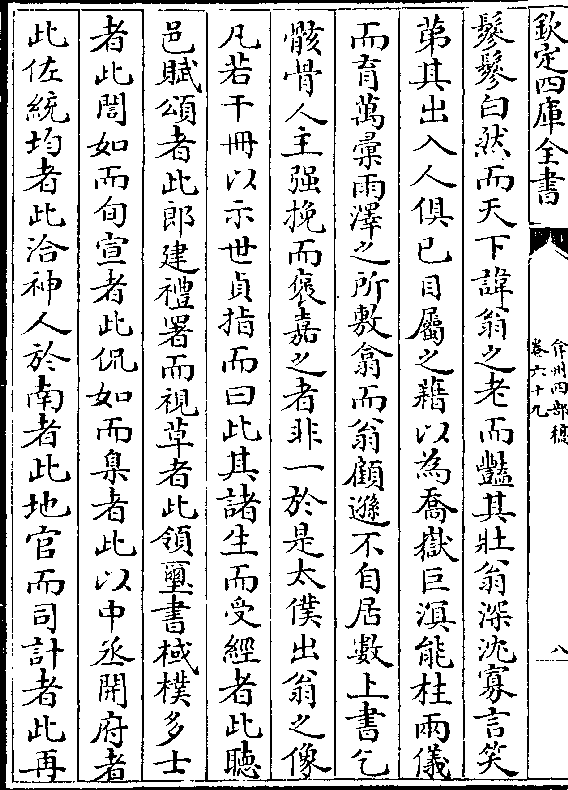 欽定四庫全書
弇州四部稿
卷六十九
八
鬖鬖白然而天下諱翁之老而豔其壯翁深沈寡言笑
苐其出入人俱已目屬之藉以為喬嶽巨滇能柱兩儀
而育萬彚雨澤之所敷翕而翁顧遜不自居數上書乞
骸骨人主强挽而褒嘉之者非一於是太僕出翁之像
凡若干冊以示世貞指而曰此其諸生而受經者此聽
邑賦頌者此郎建禮署而視草者此領璽書棫樸多士
者此誾如而旬宣者此侃如而臬者此以中丞開府者
此佐統均者此洽神人於南者此地官而司計者此再